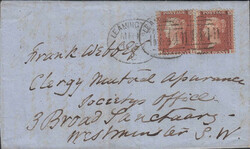 LEAMINGTON
Frank Webb Esq
Clergy Mutual Assurance
Societys Office
3 Broad Sanctuary
Westminster S.W.